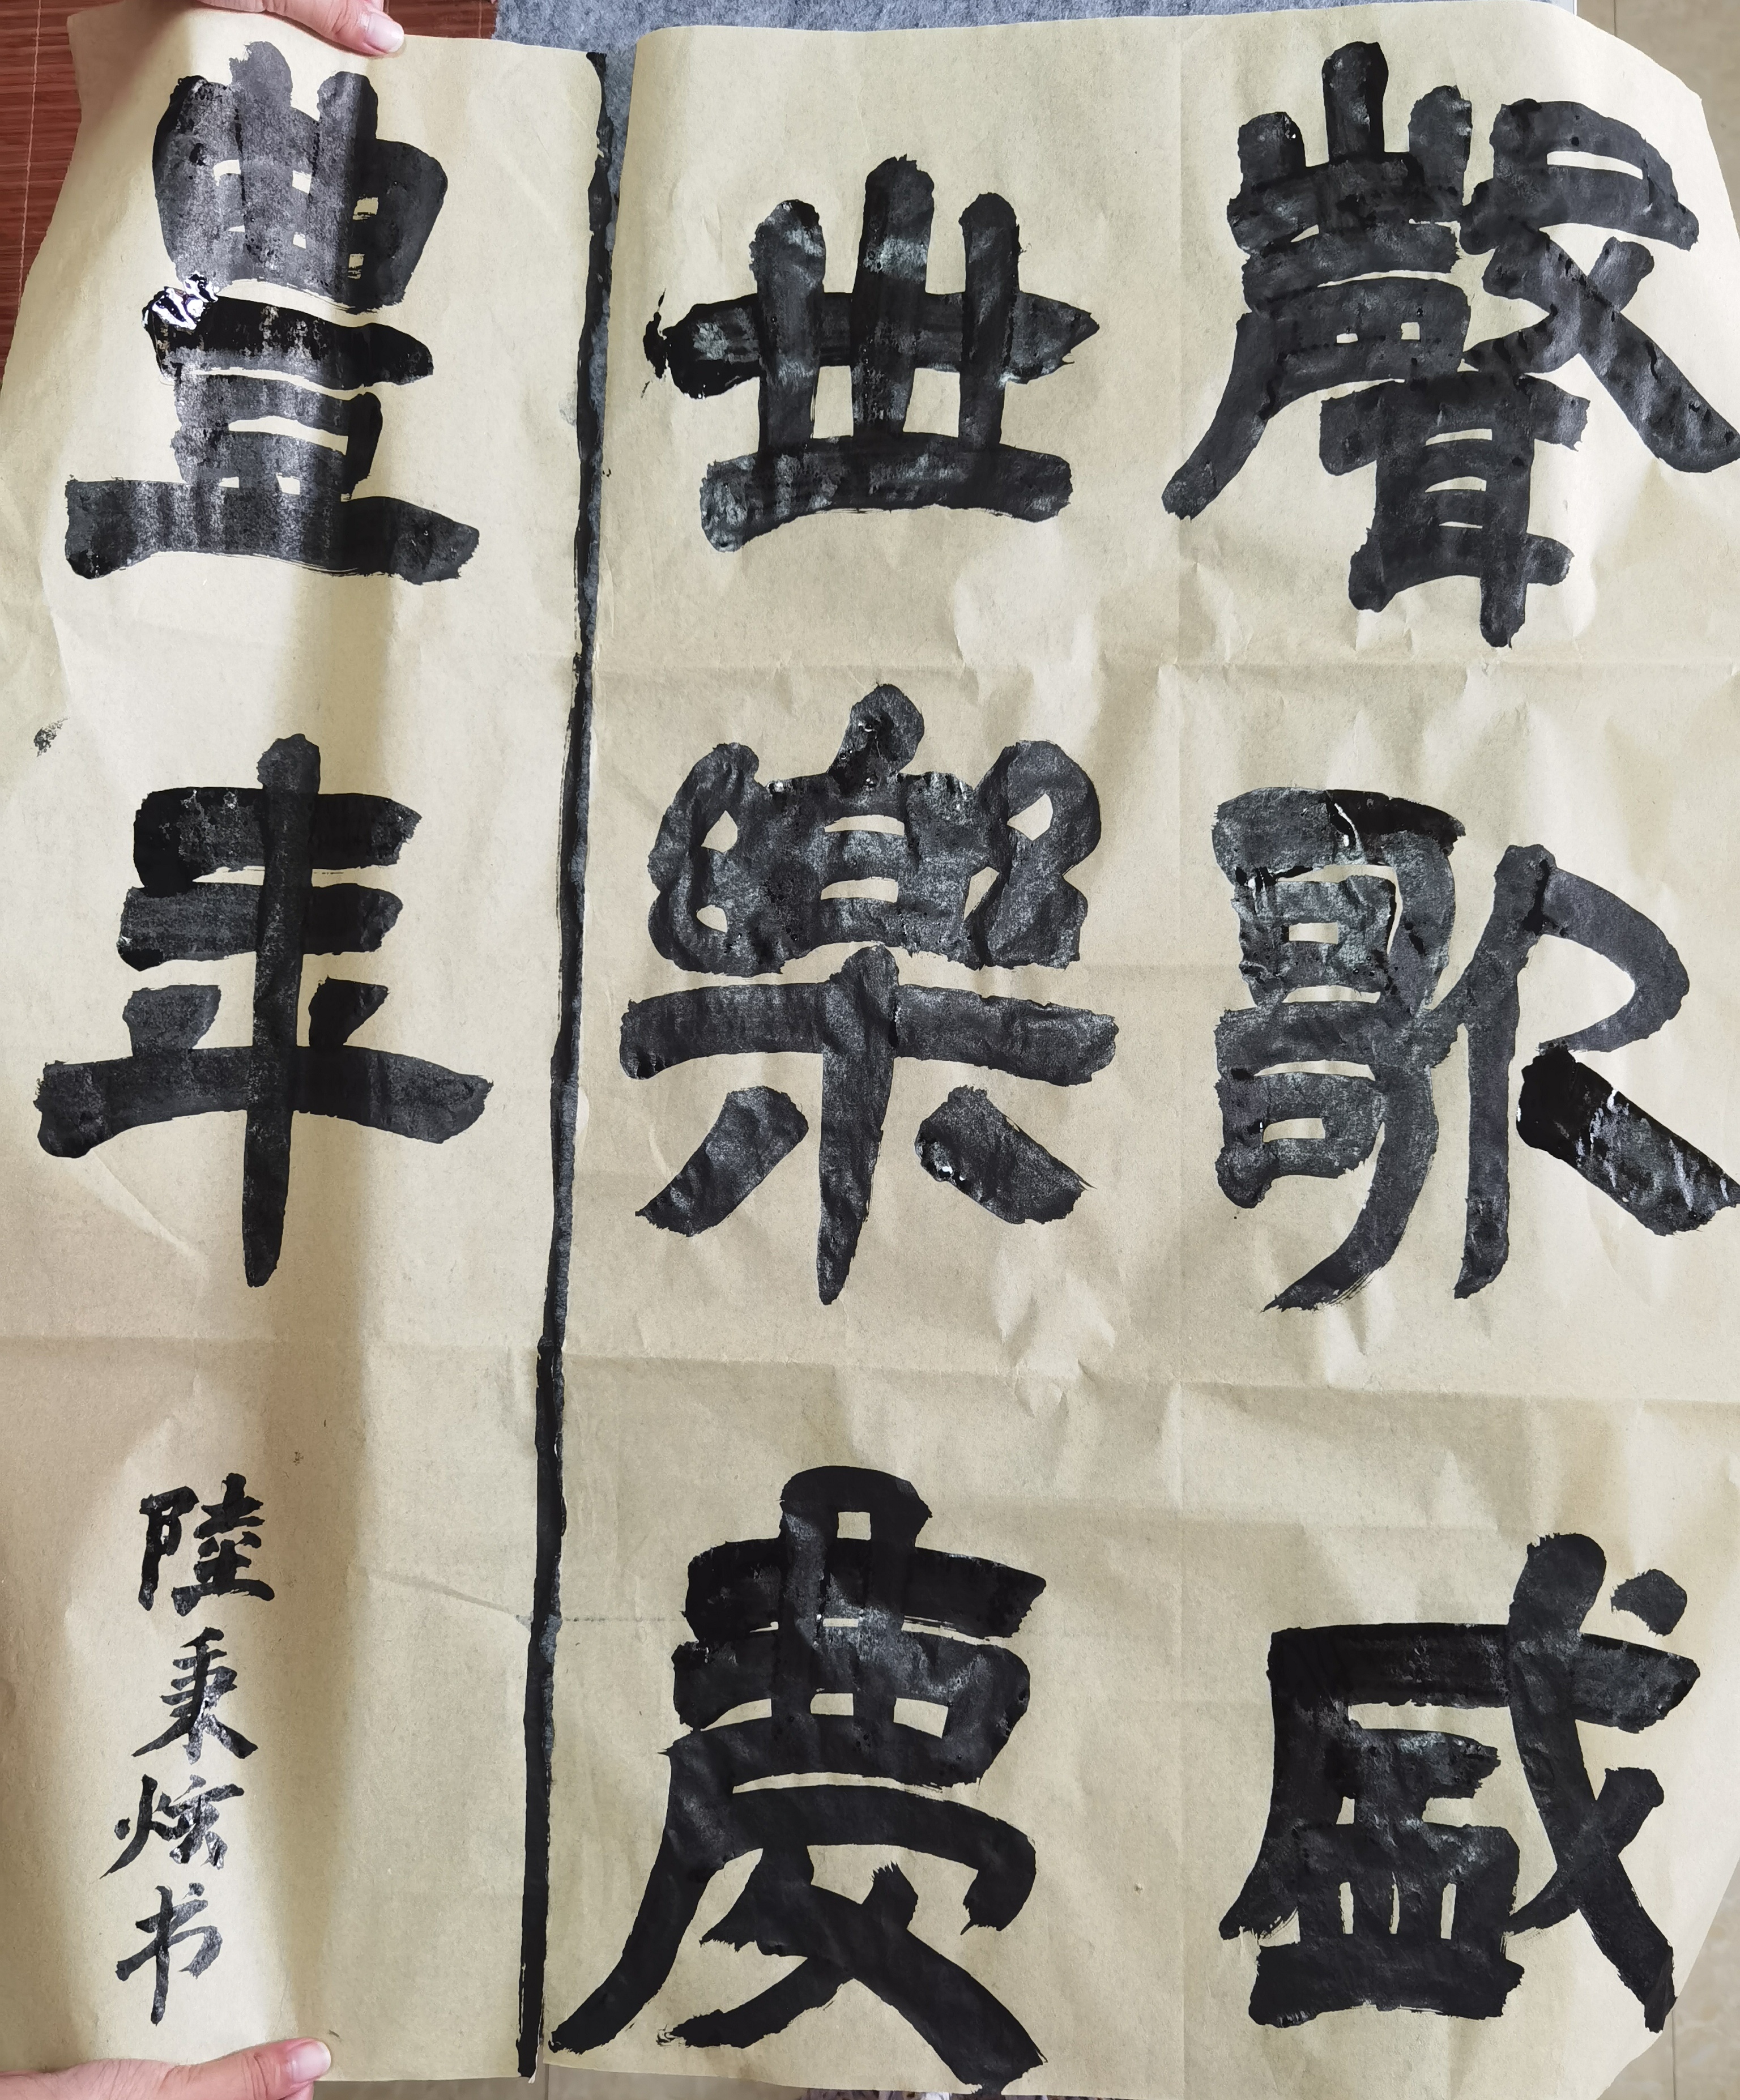 聲歌盛
世樂慶
豊年
陸秉炫书